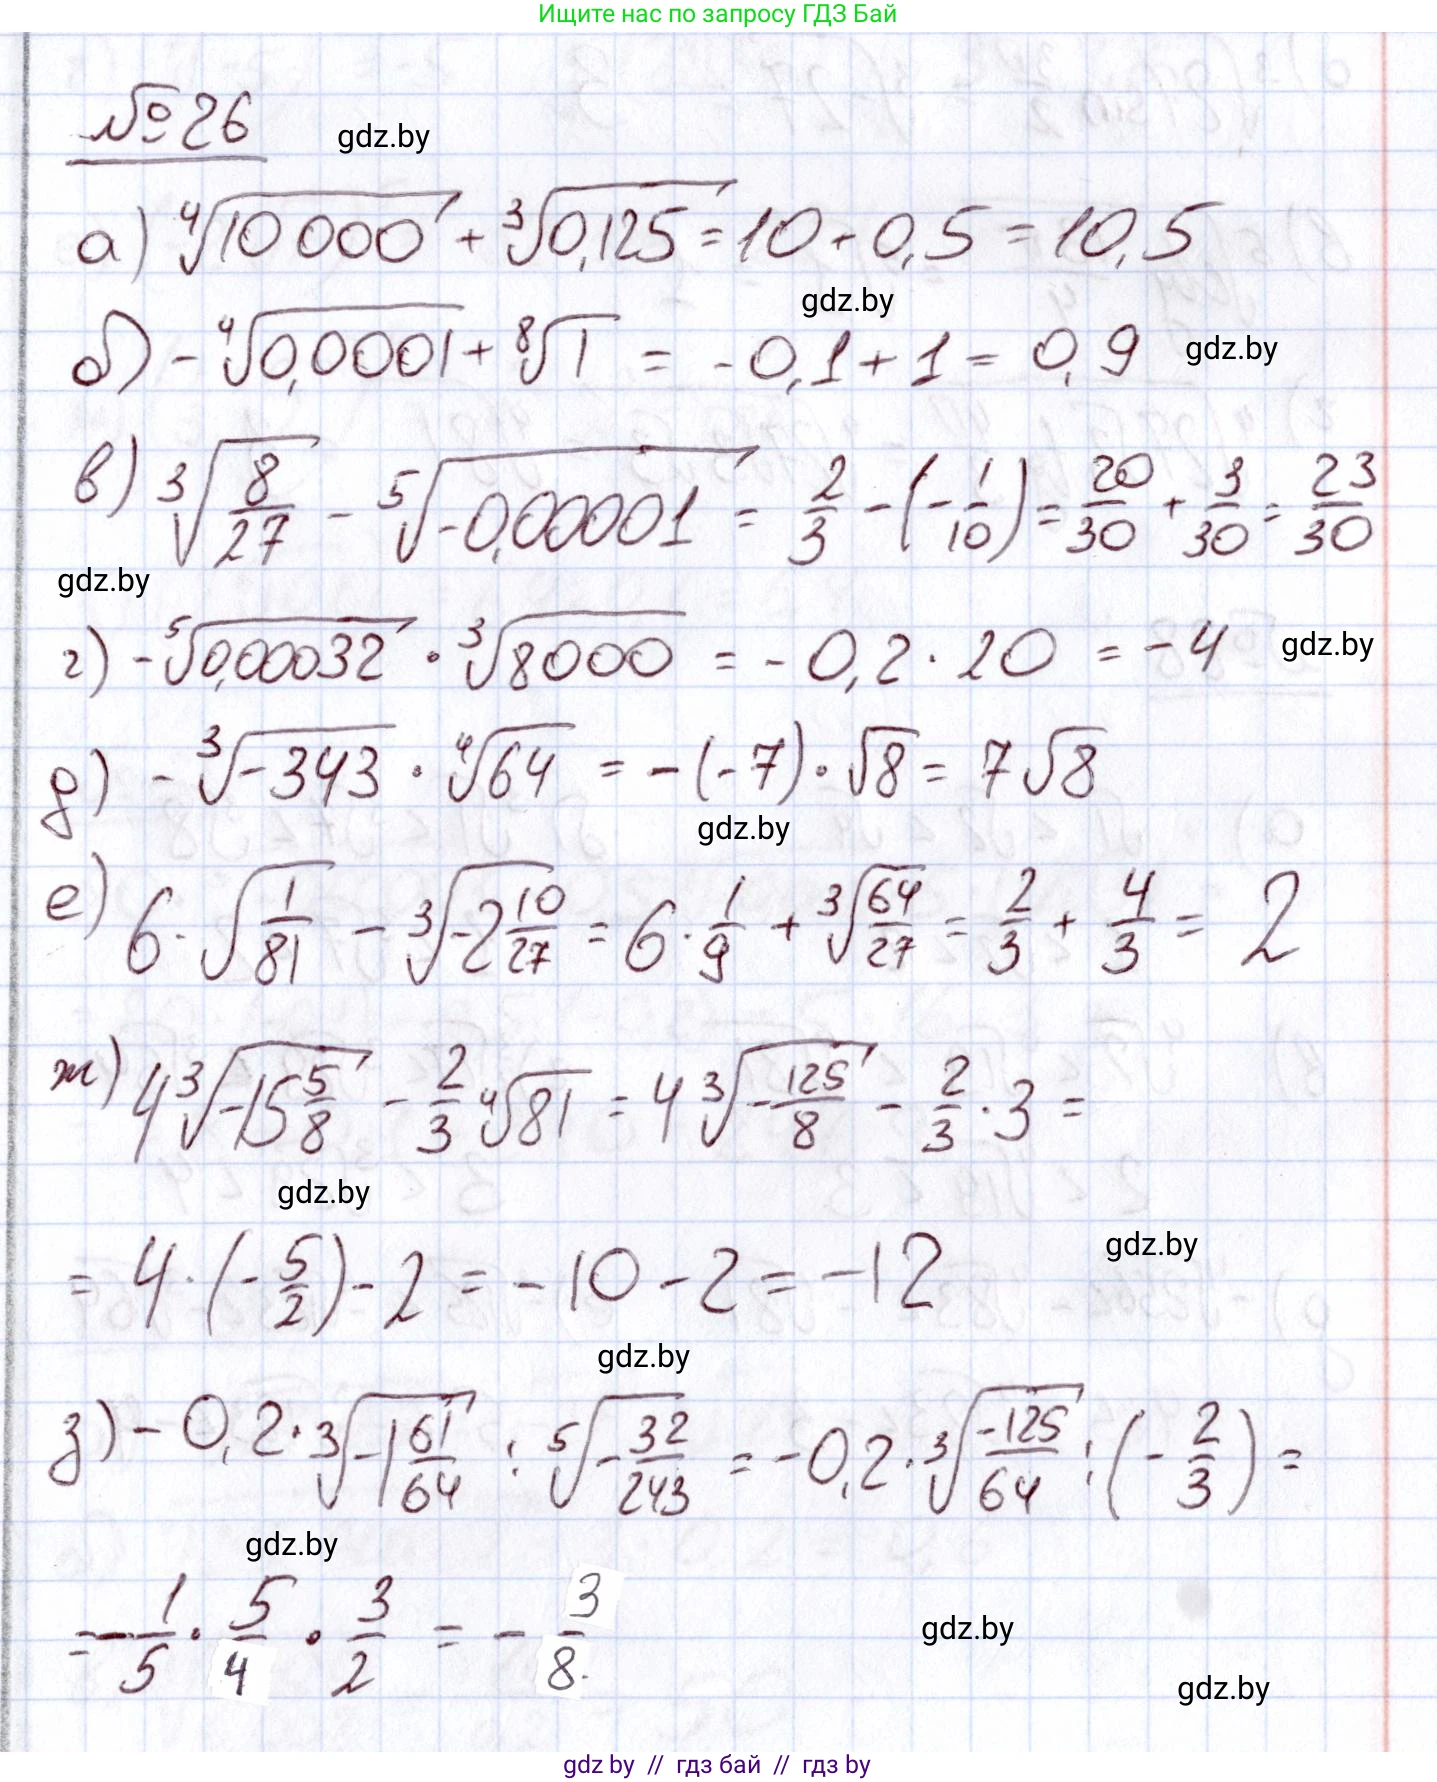 Ищите нас по запросу ГДЗ Бай
№26
gdz.by
а) ∜10 000 + ∛0,125 = 10 + 0,5 = 10,5
gdz.by
б) - ∜0,0001 + ⁸√1 = -0,1 + 1 = 0,9
gdz.by
в) ∛(8/27) - ⁵√(-0,00001) = 2/3 - (-1/10) = 20/30 + 3/30 = 23/30
gdz.by
г) - ⁵√0,00032 · ∛8000 = -0,2 · 20 = -4
gdz.by
д) - ∛(-343) · ∜64 = -(-7) · √8 = 7√8
gdz.by
е) 6 · √(1/81) - ∛(-2 10/27) = 6 · 1/9 + ∛(64/27) = 2/3 + 4/3 = 2
ж) 4∛(-15 5/8) - 2/3 ∜81 = 4∛(-125/8) - 2/3 · 3 =
gdz.by
gdz.by
= 4 · (-5/2) - 2 = -10 - 2 = -12
gdz.by
з) -0,2 · ∛(-1 61/64) : ⁵√(-32/243) = -0,2 · ∛(-125/64) : (-2/3) =
gdz.by
= - 1/5 · 5/4 · 3/2 = - 3/8.
gdz.by
gdz.by
gdz by // гдз бай // гдз by